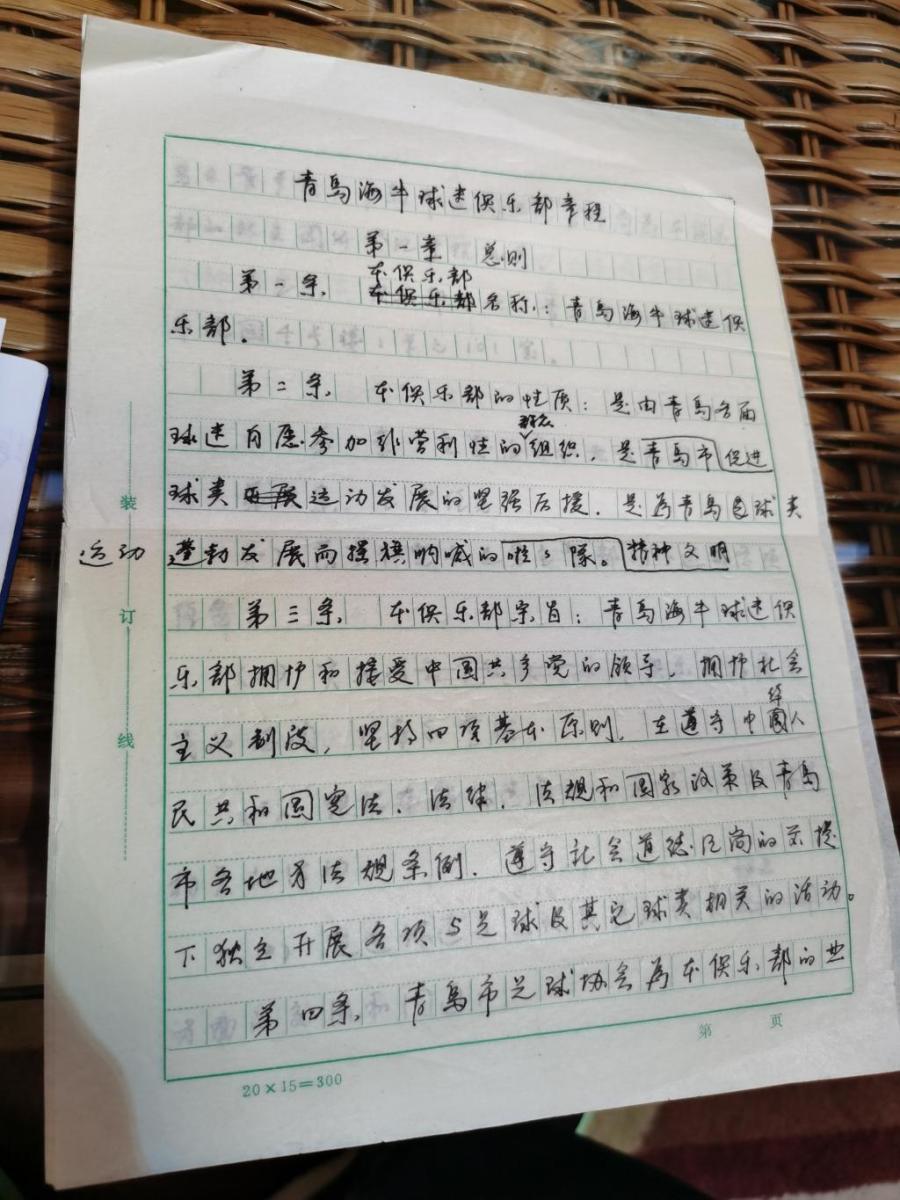 青岛海牛球迷俱乐部章程
第一章 总则
本俱乐部
第一条、本俱乐部名称:青岛海牛球迷俱
乐部.
第二条、本俱乐部的性质:是由青岛各面
群众
球迷自愿参加非营利性的组织,是青岛市促进
球类 运动发展的坚强后援.是为青岛 球类
运动 蓬勃发展而摇旗呐喊的啦々队。精神文明
第三条、本俱乐部宗旨:青岛海牛球迷俱
乐部拥护和接受中国共产党的领导,拥护社会
主义制度,坚持四项基本原则,在遵守中华人
民共和国宪法、法律、法规和国家政策及青岛
市各地方法规条例.遵守社会道德风尚的前提
下独立开展各项与足球及其它球类相关的活动。
第四条、青岛市足球协会为本俱乐部的业
装
订
线
第 页
20×15=300